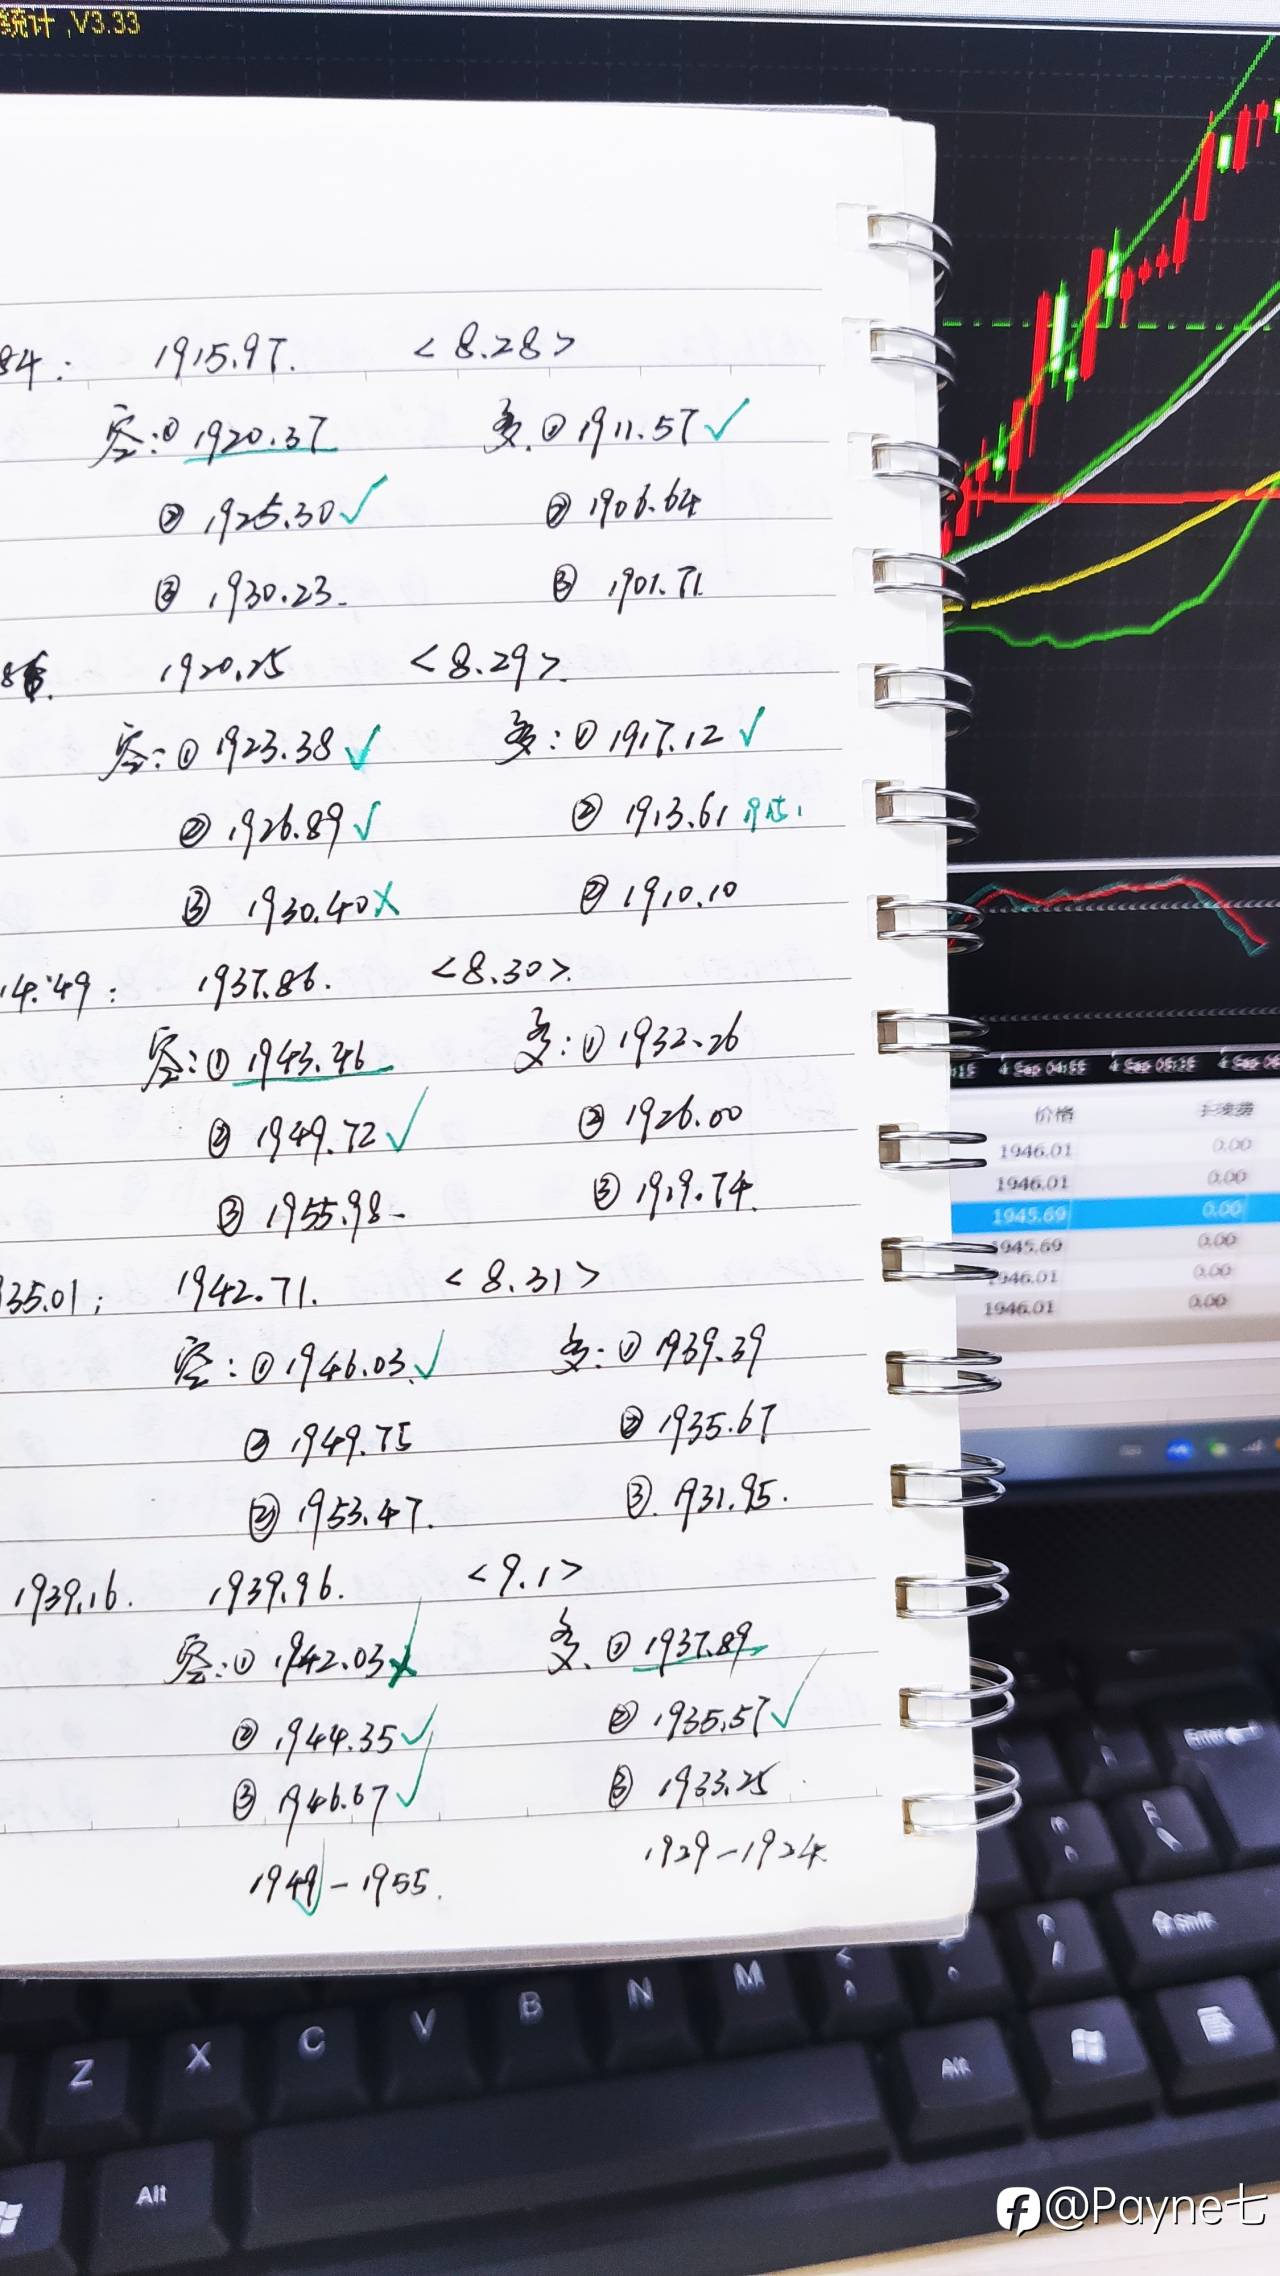 统计 ,V3.33
84: 1915.97. <8.28>
空:① 1920.37 多.① 1911.57✓
② 1925.30✓ ② 1906.64
③ 1930.23. ③ 1901.71
1920.25 <8.29>.
空:① 1923.38✓ 多:① 1917.12✓
② 1926.89✓ ② 1913.61 1915.
③ 1930.40× ② 1910.10
14.49: 1937.86. <8.30>.
空:① 1943.46 多:① 1932.26
② 1949.72✓ ② 1926.00
③ 1955.98- ③ 1919.74.
935.01: 1942.71. <8.31>
空:① 1946.03✓ 多:① 1939.39
② 1949.75 ② 1935.67
③ 1953.47. ③. 1931.95.
1939.16. 1939.96. <9.1>
空:① 1942.03 多.① 1937.89
② 1944.35✓ ② 1935.57✓
③ 1946.67✓ ③ 1933.25
1949-1955. 1929-1924.
:15 4 Sep 04:55 4 Sep 05:15 4 Sep
价格 手续费
1946.01 0.00
1946.01 0.00
1945.69 0.00
1945.69 0.00
1946.01 0.00
1946.01 0.00
Enter
Shift
Z X C V B N M
Alt Alt
@Payne七